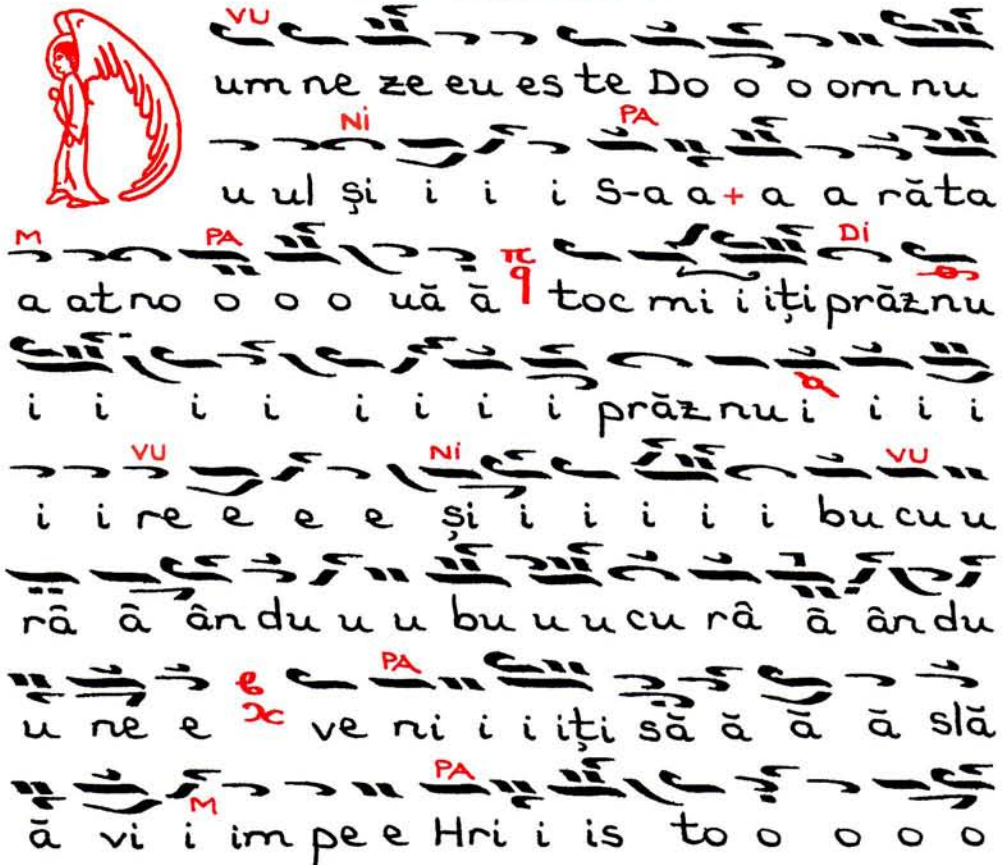 VU
um ne ze eu es te Do o o om nu
Ni PA
u ul și i i i S-a a + a a răta
M PA Di
a at no o o o uă ă π q toc mi i iți prăz nu
i i i i i i i i prăz nu i i i i
VU Ni VU
i i re e e e și i i i i i bu cu u
râ â ân du u u bu u u cu râ â ân du
PA
u ne e ve ni i i iți să ă ă ă slă
PA
M
ă vi i im pe e Hri i is to o o o o